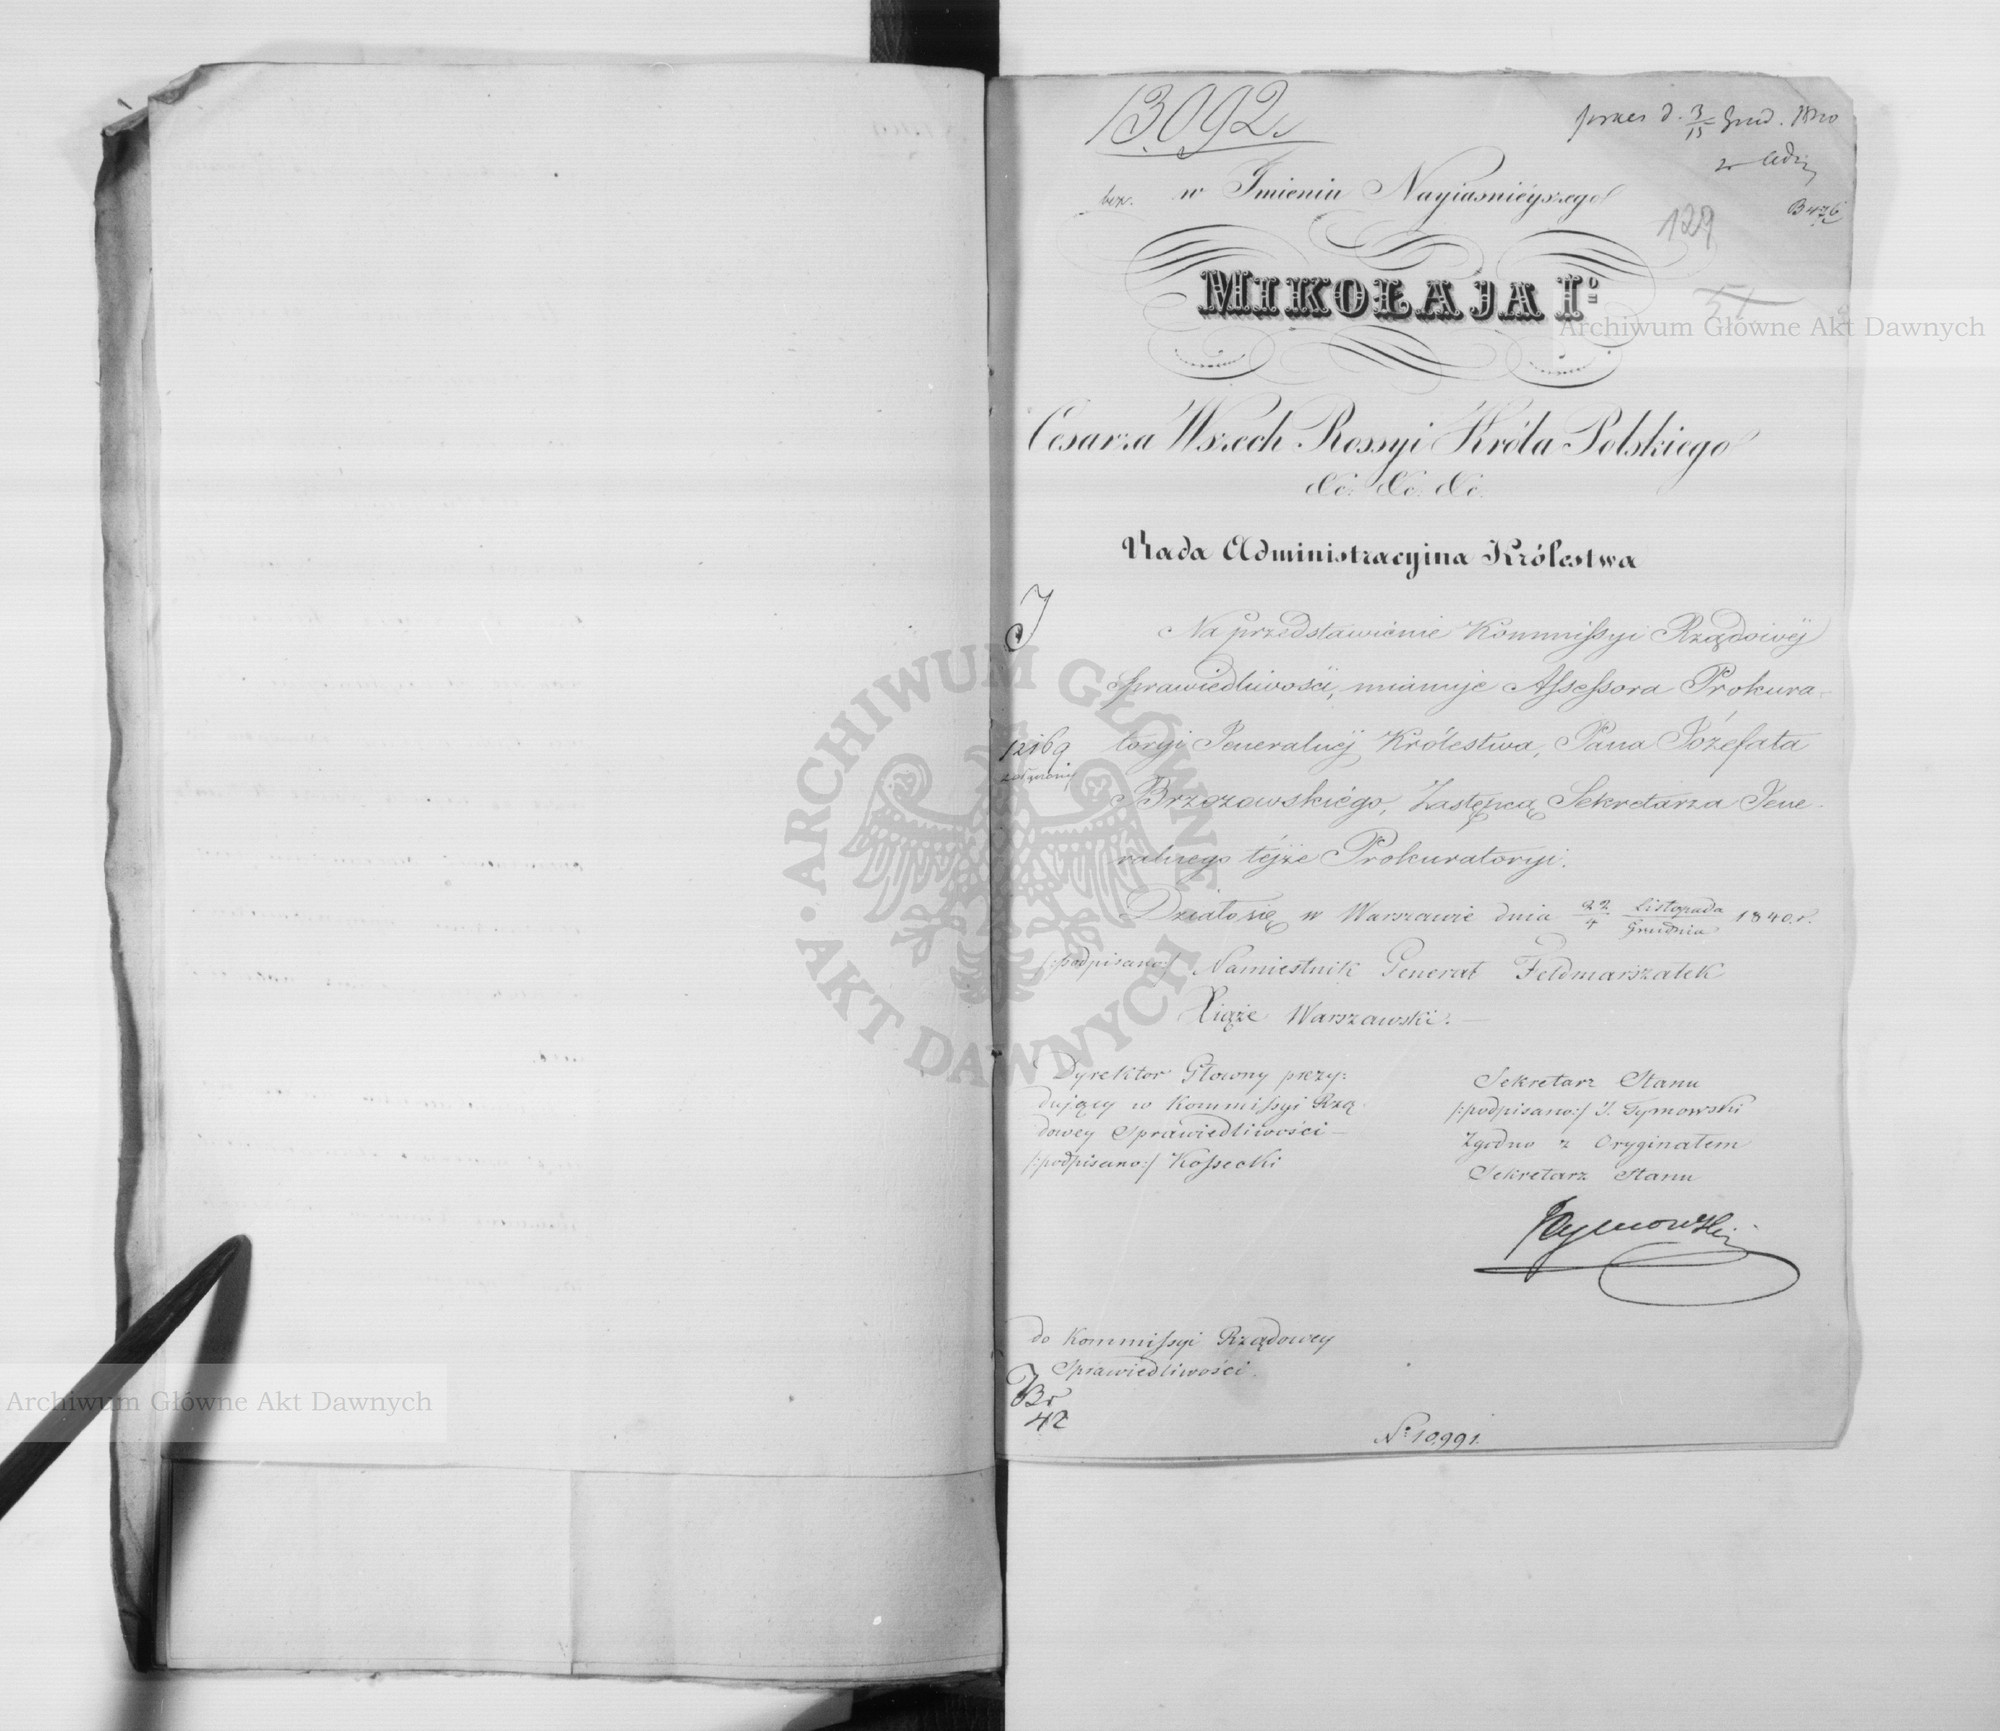 13.092.
d. 3/15 Grud. 1840
B 476
129
w Imieniu Nayiaśnieyszego
MIKOŁAJA Igo
Cesarza Wszech Rossyi Króla Polskiego
&c. &c. &c.
Rada Administracyina Królestwa
Na przedstawienie Kommissyi Rządowéj
Sprawiedliwości, mianuje Assessora Prokura-
toryi Jeneralnéj Królestwa, Pana Józefata
12169
załączony
Brzozowskiégo, Zastępcą Sekretarza Jene-
ralnego téjże Prokuratoryi.
Działo się w Warszawie dnia 22/4 Listopada/Grudnia 1840. r.
/:podpisano:/ Namiestnik Generał Feldmarszałek
Xiąże Warszawski. —
Dyrektor Główny prezy:
dujący w Kommissyi Rzą-
dowey Sprawiedliwości —
/:podpisano:/ Kossecki
Sekretarz Stanu
/:podpisano:/ J. Tymowski
Zgodno z Oryginałem
Sekretarz Stanu
JTymowski
do Kommissyi Rządowey
Sprawiedliwości.
Br
42
No 10,991.
Archiwum Główne Akt Dawnych
ARCHIWUM GŁÓWNE AKT DAWNYCH
Archiwum Główne Akt Dawnych